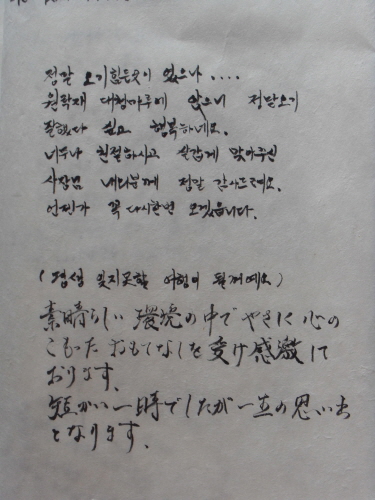 정말 오기힘든곳이 었으나 ....
원학재 대청마루에 앉으니 정말오기
잘했다 싶고 행복하네요.
너무나 친절하시고 살갑게 맞아주신
사장님 내외분께 정말 감사드려요.
언젠가 꼭 다시한번 오겠습니다.
(평생 잊지못할 여행이 될꺼예요)
素晴らしい 環境の中で やさしく 心の
こもった おもてなしを 受け 感激して
おります.
短かい一時でしたが一生の思い出
となります.